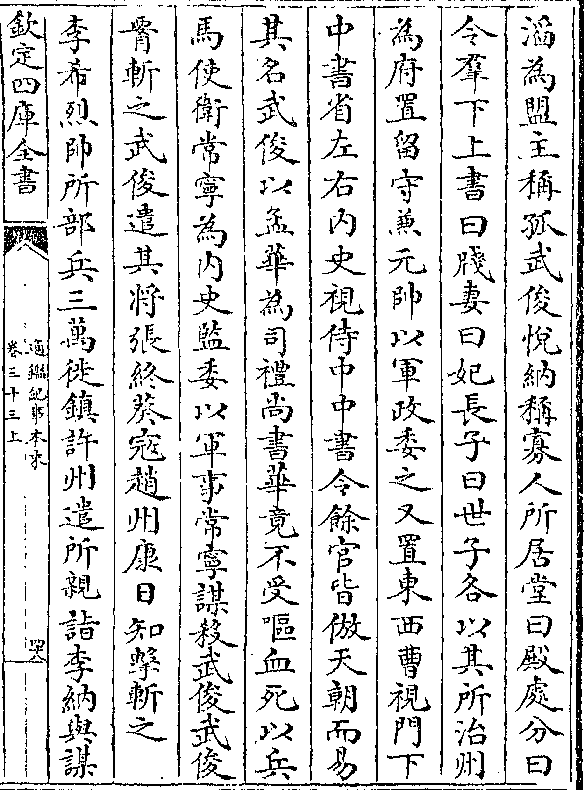 滔為盟主稱孤武俊悅納稱寡人所居堂曰殿處分曰
令羣下上書曰牋妻曰妃長子曰世子各以其所治州
為府置留守兼元帥以軍政委之又置東西曹視門下
中書省左右内史視侍中中書令餘官皆倣天朝而易
其名武俊以孟華為司禮尚書華竟不受嘔血死以兵
馬使衛常寧為内史監委以軍事常寧謀殺武俊武俊
腰斬之武俊遣其將張終葵寇趙州康日知擊斬之
李希烈帥所部兵三萬徙鎮許州遣所親詣李納與謀
欽定四庫全書
通鑑紀事本末
卷三十三上